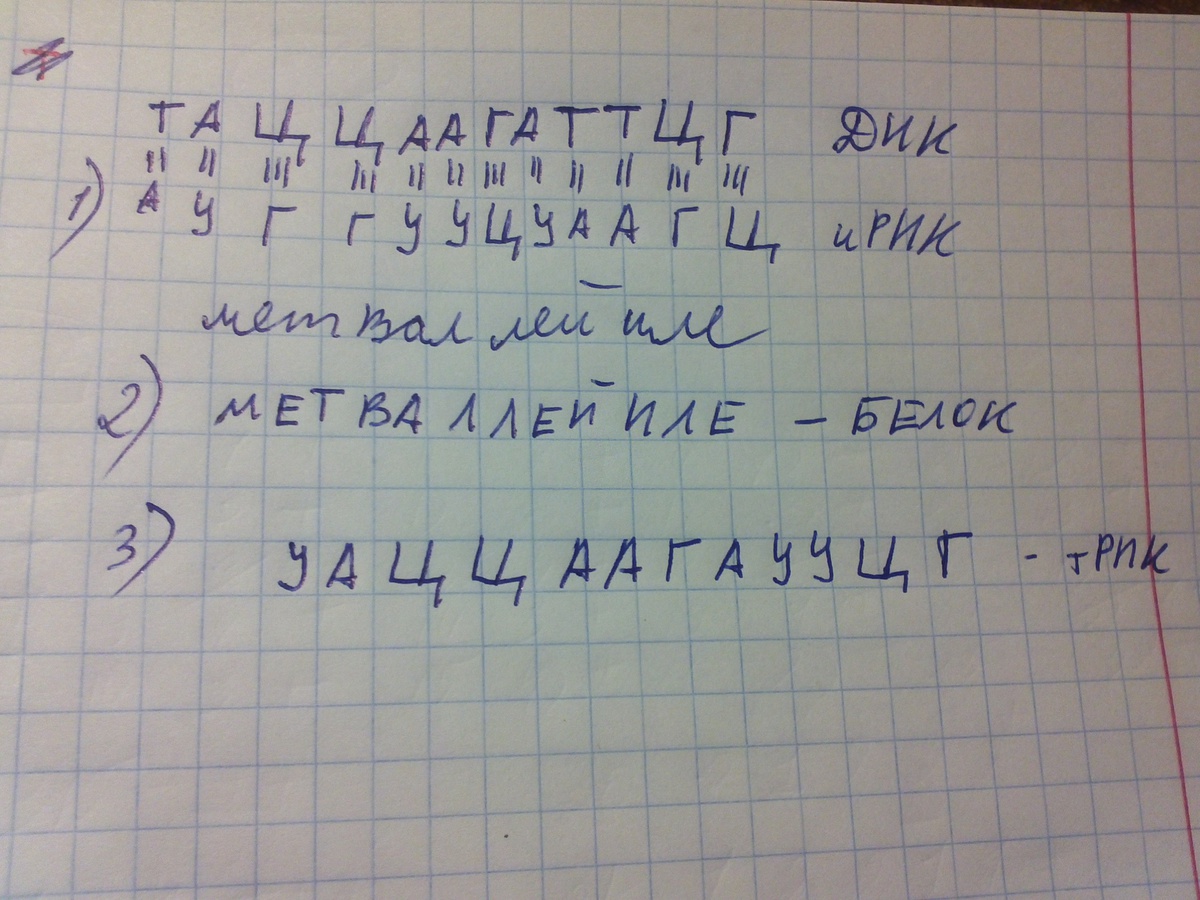 Т А Ц Ц А А Г А Т Т Ц Г ДНК
1) А У Г Г У У Ц У А А Г Ц иРНК
мет вал лей иле
2) МЕТ ВАЛ ЛЕЙ ИЛЕ – БЕЛОК
3) У А Ц Ц А А Г А У У Ц Г - тРНК